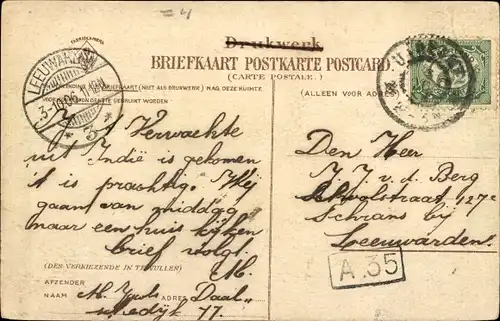 = 4
Drukwerk
BRIEFKAART POSTKARTE POSTCARD
(CARTE POSTALE.)
(ALLEEN VOOR ADRES)
BRIEFKAART (NIET ALS DRUKWERK) MAG DEZE RUIMTE
GEBRUIKT WORDEN
LEEUWARDEN
3
Verwachte
uit Indië is gekomen
't is prachtig. Wij
gaan van middag
maar een huis kijken
brief volgt.
M.
(DES VERKIEZENDE IN TE VULLEN)
AFZENDER
NAAM M. ADRES Daal-
sedijk 77.
Den Heer
J J v. d. Berg
Schoolstraat 127
Schrans bij
Leeuwarden
A.35